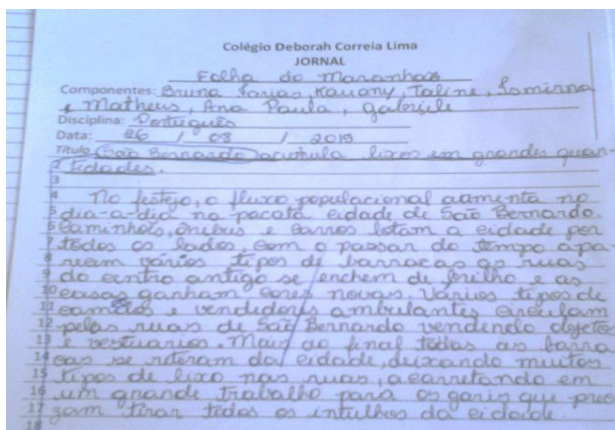 Colégio Deborah Correia Lima
JORNAL
Folha do Maranhão
Componentes: Bruna Farias, Kauany, Taline, Ismirna
e Matheus, Ana Paula, Gabriele
Disciplina: Português
Data: 26 / 08 / 2019
Título São Bernardo acumula lixos em grandes quan-
2 tidades.
3
4 No festejo, o fluxo populacional aumenta no
5 dia-a-dia na pacata cidade de São Bernardo.
6 Caminhões, ônibus e carros lotam a cidade por
7 todos os lados, com o passar do tempo apa
8 recem vários tipos de barracas as ruas
9 do centro antigo se enchem de brilho e as
10 casas ganham cores novas. Vários tipos de
11 camelôs e vendedores ambulantes circulam
12 pelas ruas de São Bernardo vendendo objetos
13 e vestuarios. Mais ao final todas as barra
14 cas se retiram da cidade, deixando muitos
15 tipos de lixo nas ruas, acarretando em
16 um grande trabalho para os garis que preci
17 zam tirar todos os intulhos da cidade.
18